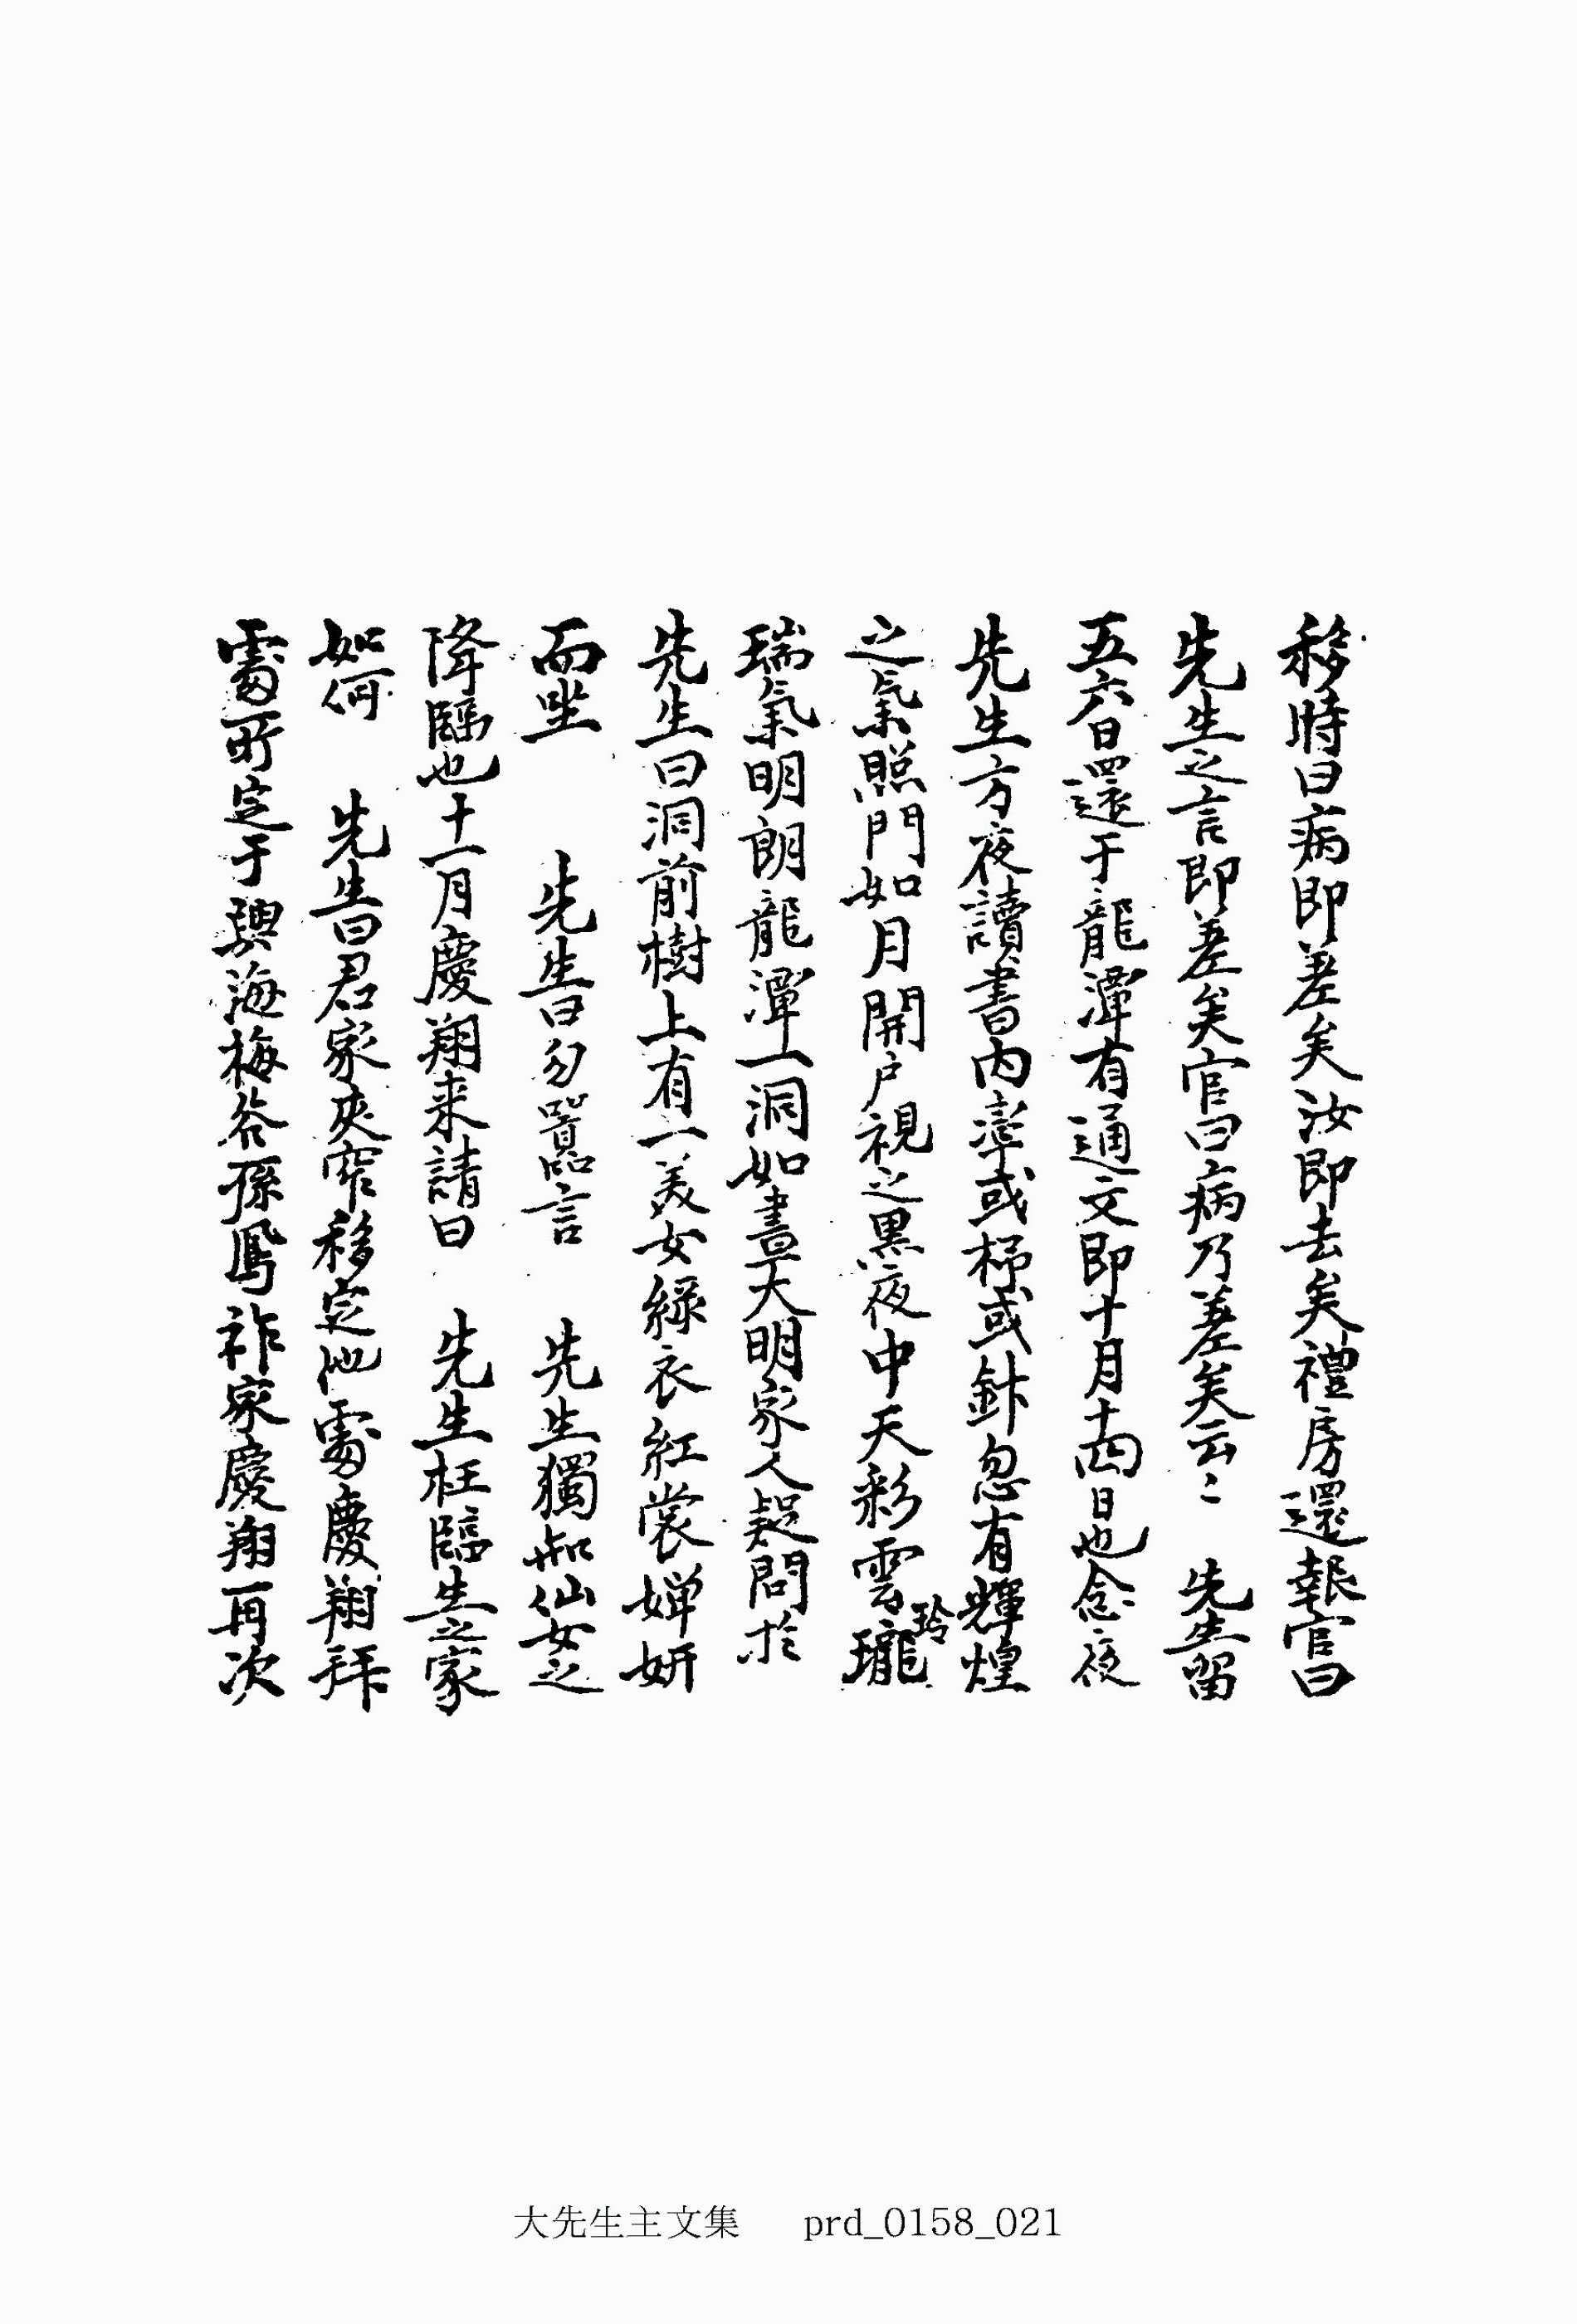 移時曰病即差矣汝即去矣禮房還報官曰
先生之言即差矣官曰病乃差矣云〻 先生留
五六日還于龍潭有通文即十月十四日也念夜
先生方夜讀書內率或梯或針忽有輝煌
之氣照門如月開戶視之黑夜中天彩雲玲瓏
瑞氣明朗龍潭一洞如晝大明家人疑問於
先生曰洞前樹上有一美女綠衣紅裳嬋妍
而坐 先生曰勿囂言 先生獨知仙女之
降臨也十一月慶翔来請曰 先生枉臨生之家
如何 先生曰君家狹窄移定他處慶翔拜
處所定于興海梅谷孫鳳祚家慶翔再次
大先生主文集 prd_0158_021